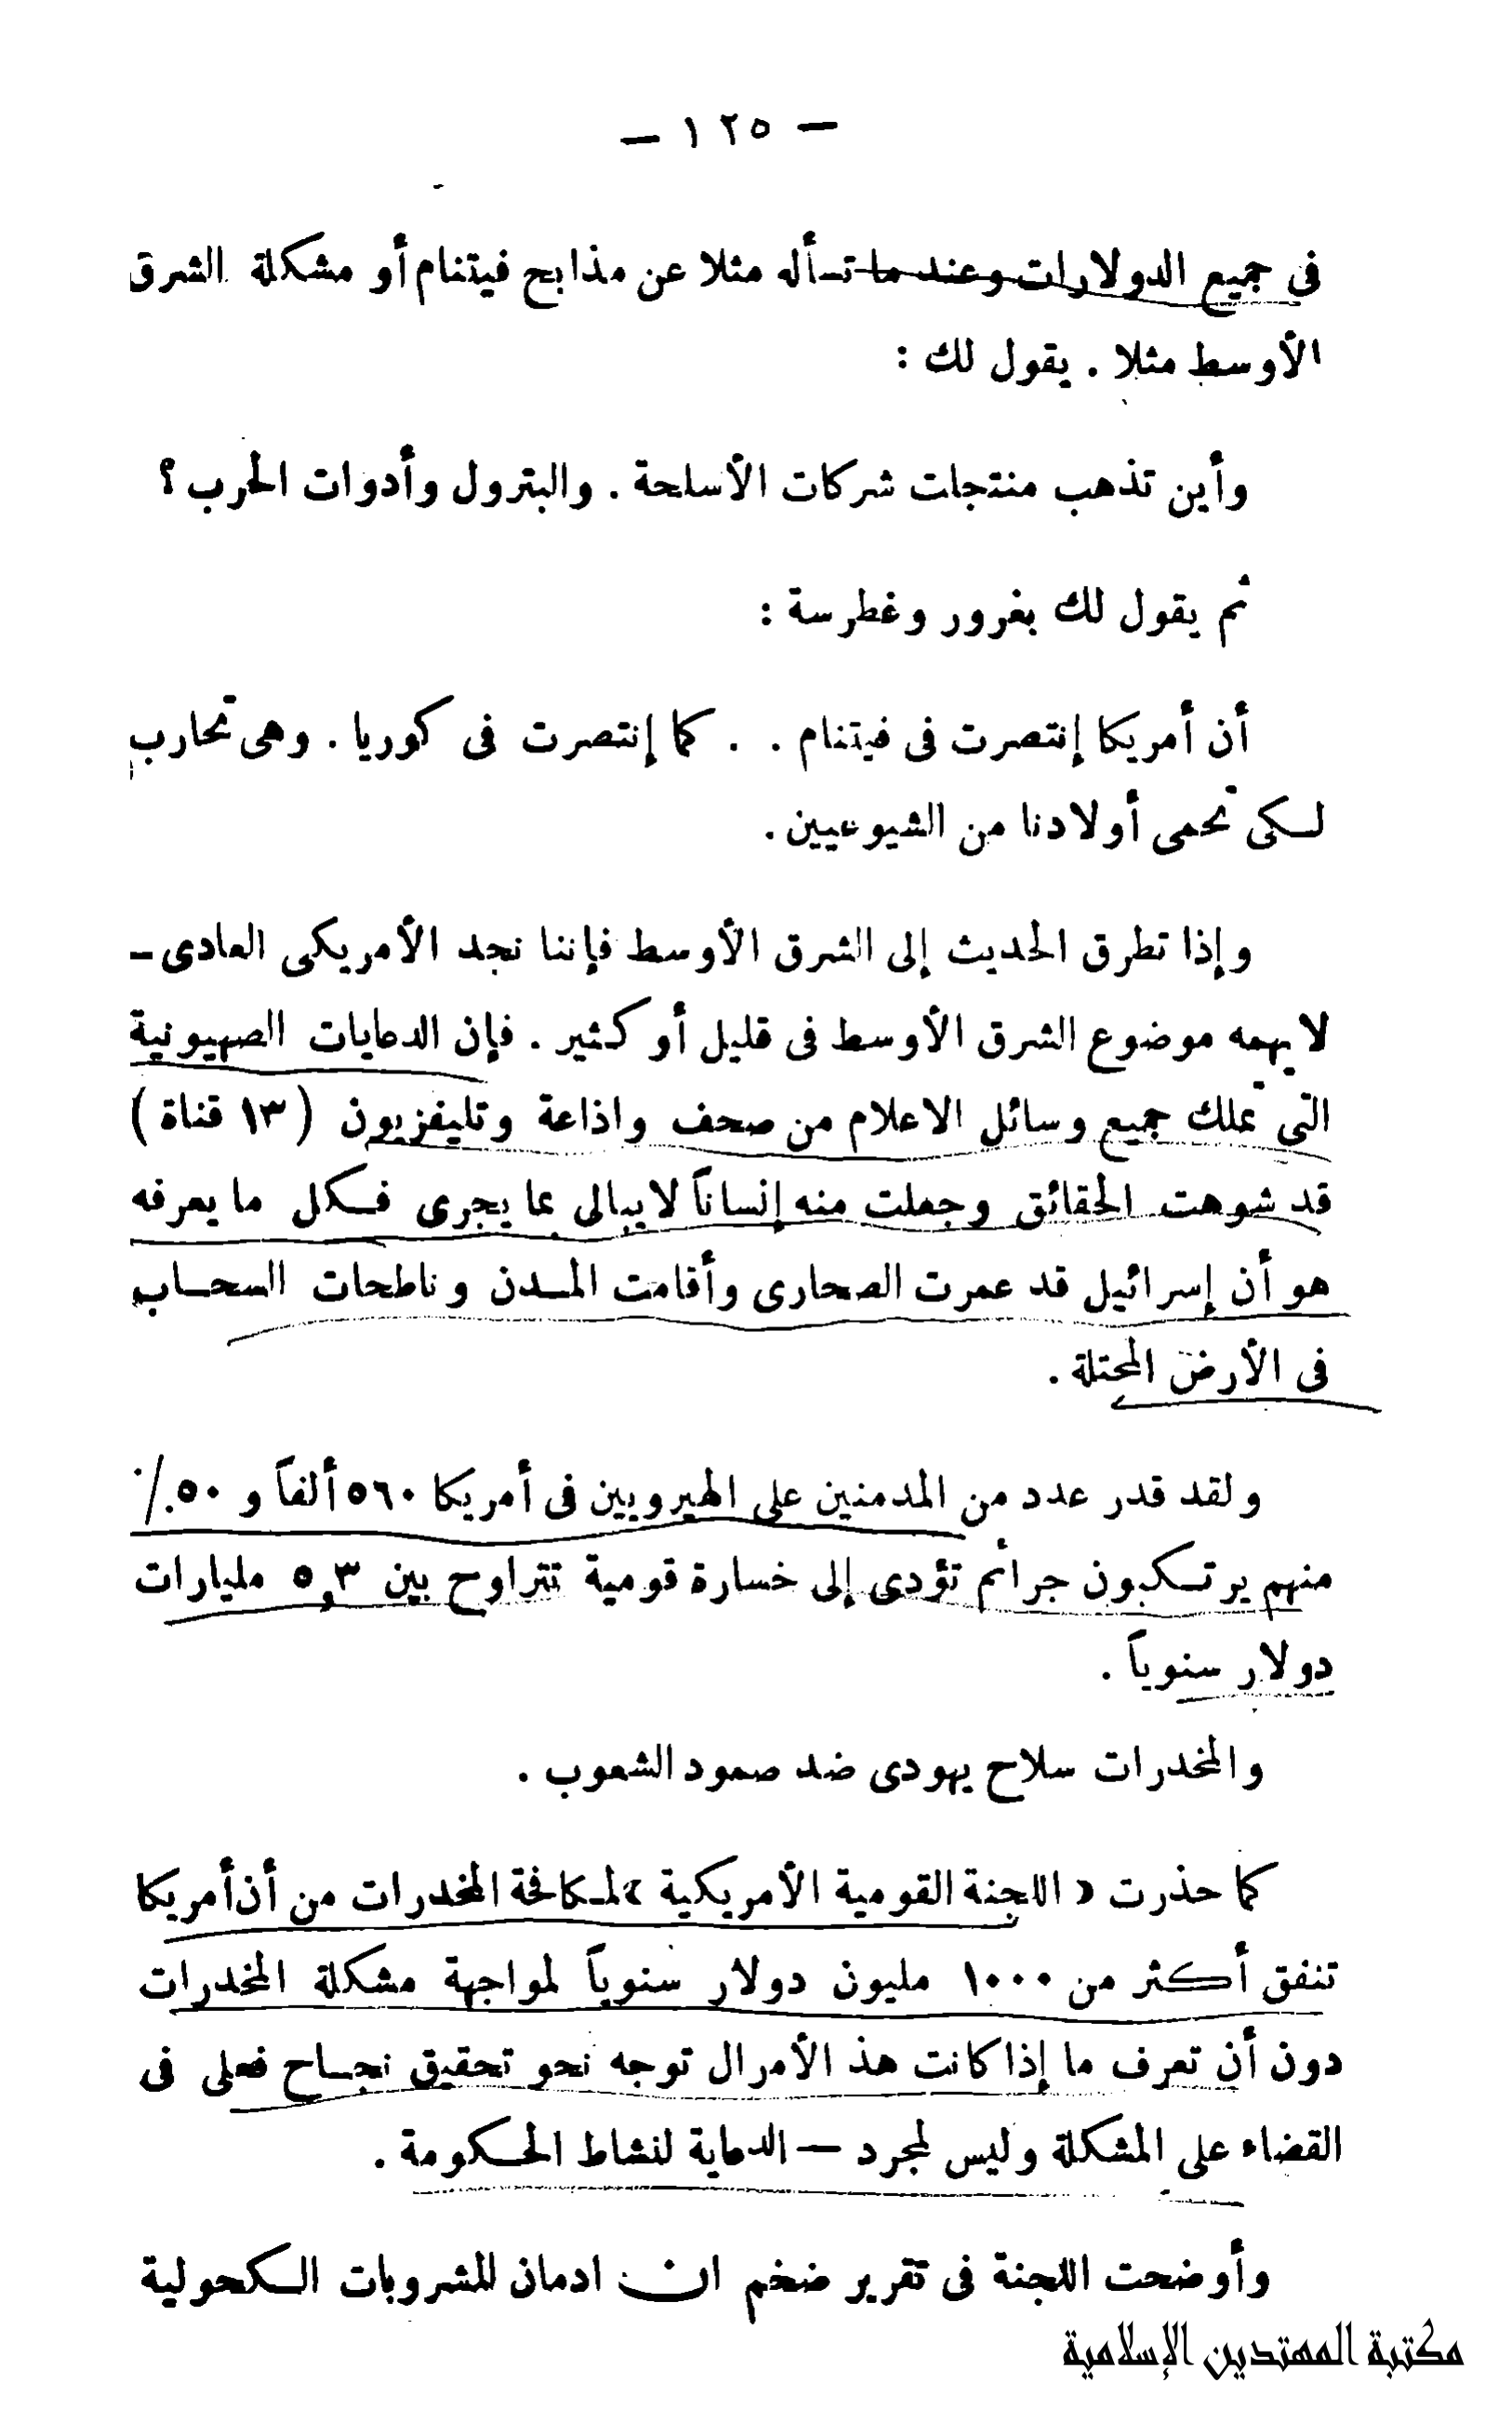 — ١٢٥ —
فى جميع الدولارات وعند ما تسأله مثلا عن مذابح فيتنام أو مشكلة الشرق
الأوسط مثلا . يقول لك :
وأين تذهب منتجات شركات الأسلحة . والبترول وأدوات الحرب ؟
ثم يقول لك بغرور وغطرسة :
أن أمريكا إنتصرت فى فيتنام . . كما إنتصرت فى كوريا . وهى تحارب
لكى تحمى أولادنا من الشيوعيين .
وإذا تطرق الحديث إلى الشرق الأوسط فإننا نجد الأمريكى العادى -
لا يهمه موضوع الشرق الأوسط فى قليل أو كثير . فإن الدعايات الصهيونية
التى تملك جميع وسائل الاعلام من صحف واذاعة وتليفزيون ( ١٣ قناة )
قد شوهت الحقائق وجعلت منه إنساناً لا يبالى بما يجرى فكل ما يعرفه
هو أن إسرائيل قد عمرت الصحارى وأقامت المدن وناطحات السحاب
فى الأرض المحتلة .
ولقد قدر عدد من المدمنين على الهيرويين فى أمريكا ٥٦٠ ألفاً و ٥٠ ٪
منهم يرتكبون جرائم تؤدى إلى خسارة قومية تتراوح بين ٥,٣ مليارات
دولار سنوياً .
والمخدرات سلاح يهودى ضد صمود الشعوب .
كما حذرت « اللجنة القومية الأمريكية » لمكافحة المخدرات من أن أمريكا
تنفق أكثر من ١٠٠٠ مليون دولار سنوياً لمواجهة مشكلة المخدرات
دون أن تعرف ما إذا كانت هذ الأمرال توجه نحو تحقيق نجاح فعلى فى
القضاء على المشكلة وليس لمجرد — الدعاية لنشاط الحكومة .
وأوضحت اللجنة فى تقرير ضخم ان ادمان للمشروبات الكحولية
مكتبة المهتدين الإسلامية